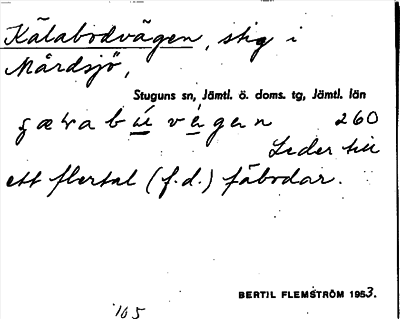 Kälabodvägen, stig i
Mårdsjö,
Stuguns sn, Jämtl. ö. doms. tg, Jämtl. län
260
Leder till
ett flertal (f.d.) fäbodar.
BERTIL FLEMSTRÖM 1953.
165